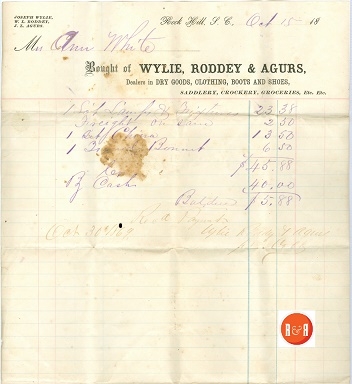 JOSEPH WYLIE,
W. L. RODDEY,
J. L. AGURS.
Rock Hill, S. C., Oct 15 18
Mrs Ann White
Bought of WYLIE, RODDEY & AGURS,
Dealers in DRY GOODS, CLOTHING, BOOTS AND SHOES,
SADDLERY, CROCKERY, GROCERIES, Etc. Etc.
1 23.38
Freight on Same 2 50
1 Set China 13 50
1 Bonnet 6 50
$45.88
By Cash 40.00
Balance $5.88
Recd Paymt
Oct 30 Wylie Roddey & Agurs
R&R